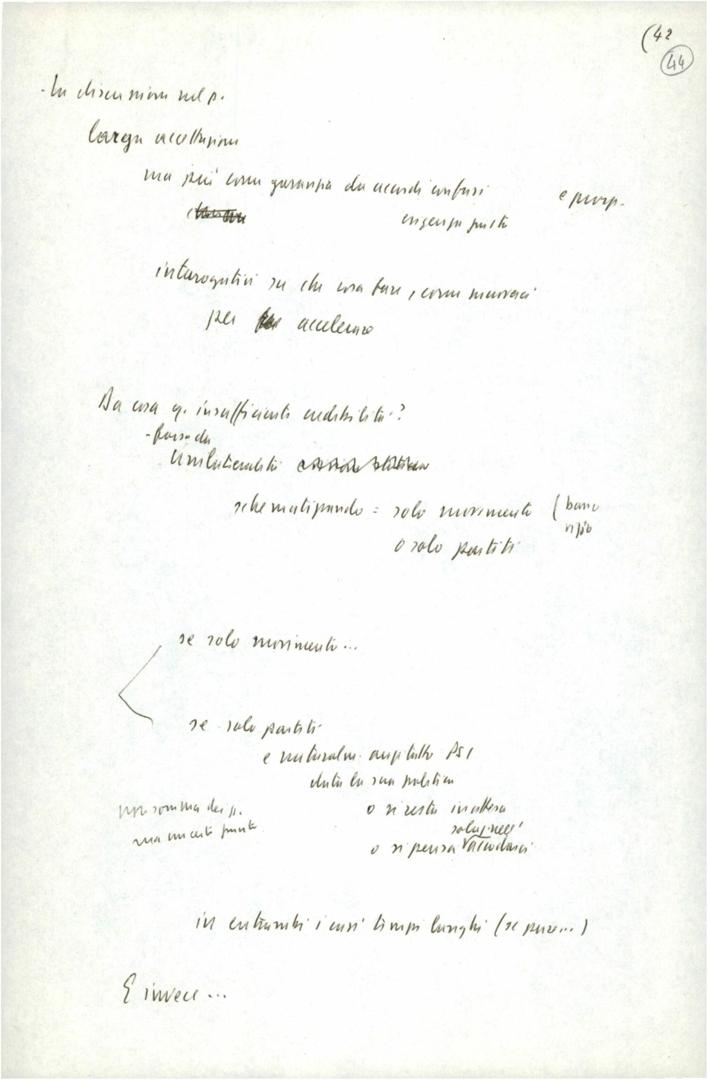 (42
44
- In discussioni nel p.
larga accettazione
ma più come garanzia da accordi confusi e prosp.
esigenza giusta
interrogativi su che cosa fare, come muoversi
per accelerare
Da cosa q. insufficiente credibilità?
- forse da
Unilateralità
schematizzando = solo movimento (basso
o solo partiti
se solo movimento...
se solo partiti
e naturalm. anzitutto PSI
data la sua politica
non somma dei p. o si resta in attesa
ma un certo punto solo nell'
o si pensa accodarsi
in entrambi i casi tempi lunghi (se pure...)
E invece...